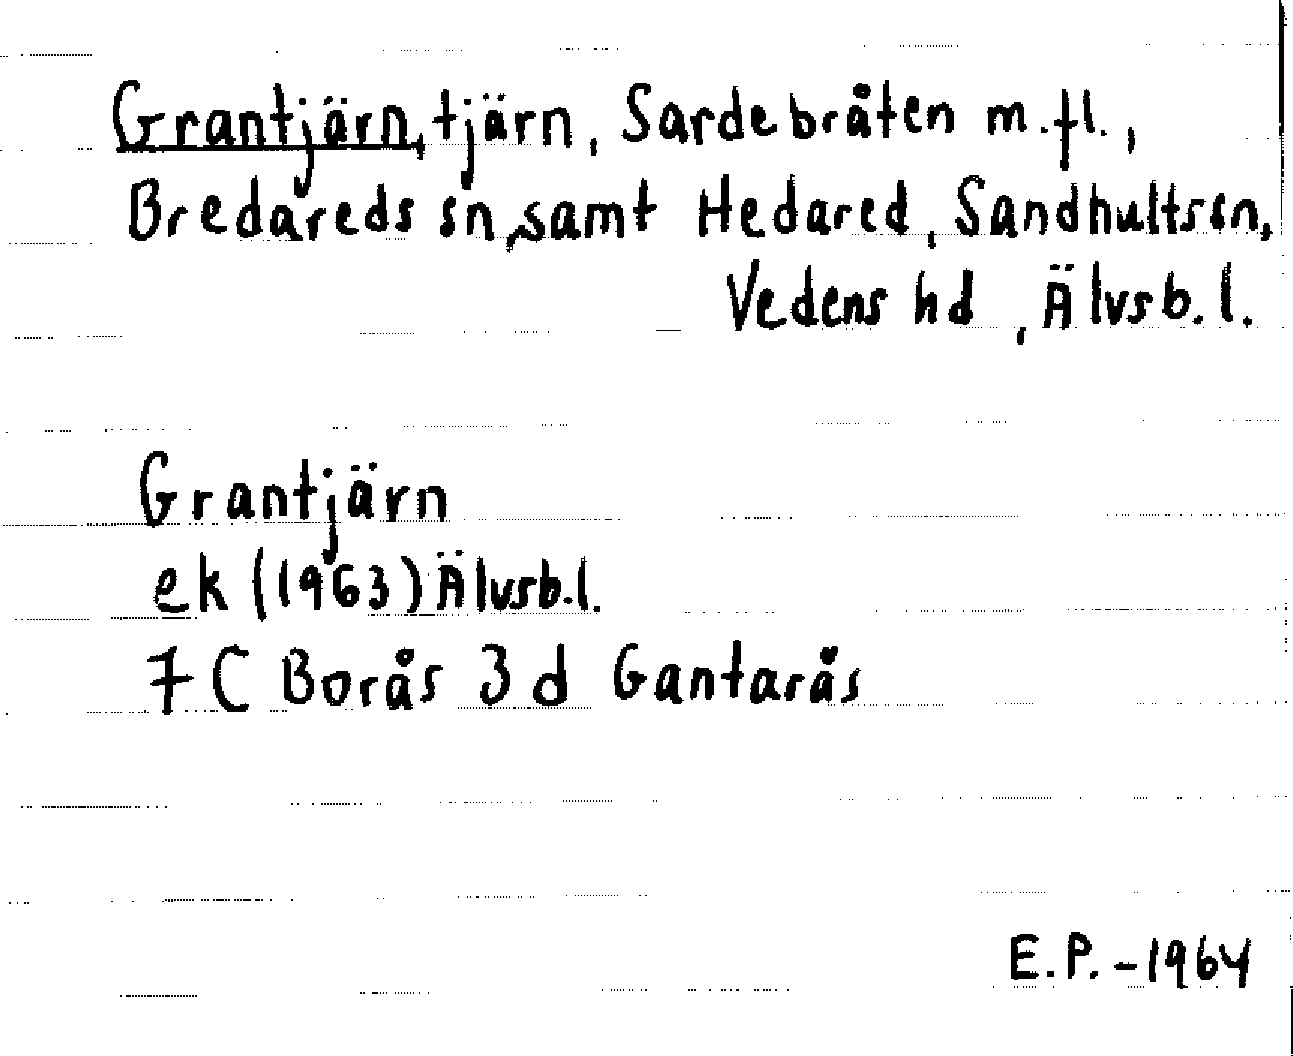 Grantjärn, tjärn, Sardebråten m.fl.,
Bredareds sn, samt Hedared, Sandhults sn,
Vedens hd, Älvsb.l.
Grantjärn
ek (1963) Älvsb.l.
7 C Borås 3 d Gantarås
E.P. - 1964